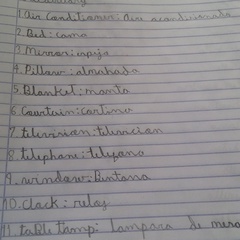 1. air conditioner: aire acondicionado
2. Bed: cama
3. Mirror: espejo
4. Pillow: almohada
5. Blanket: manta
6. Courtain: cortina
7. television: television
8. telephone: telefono
9. window: Bentana
10. clock: reloj
11. table lamp: lampara de mesa